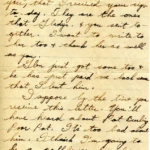 you, that I received your eggs
to day. They are the ones
that Gladys & you sent to
gether. I want to write to
her too & thank her as well
as you.
Glen just got some too &
he has put paid me back ones
that I lent him.
I expect by the time you
receive this letter. You'll
have heard about Pat
Poor Pat. It's too bad about
him. I'm going to